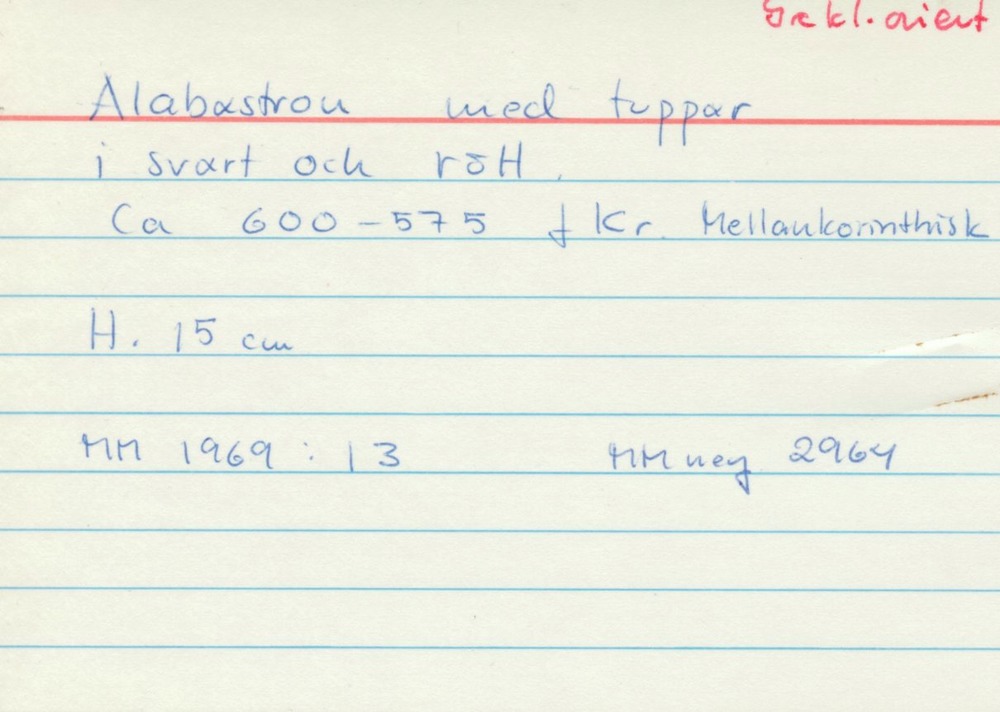 Grekl. orient
Alabastron med tuppar
i svart och rött.
Ca 600-575 f Kr. Mellankorinthisk
H. 15 cm
MM 1969:13 MM neg 2964